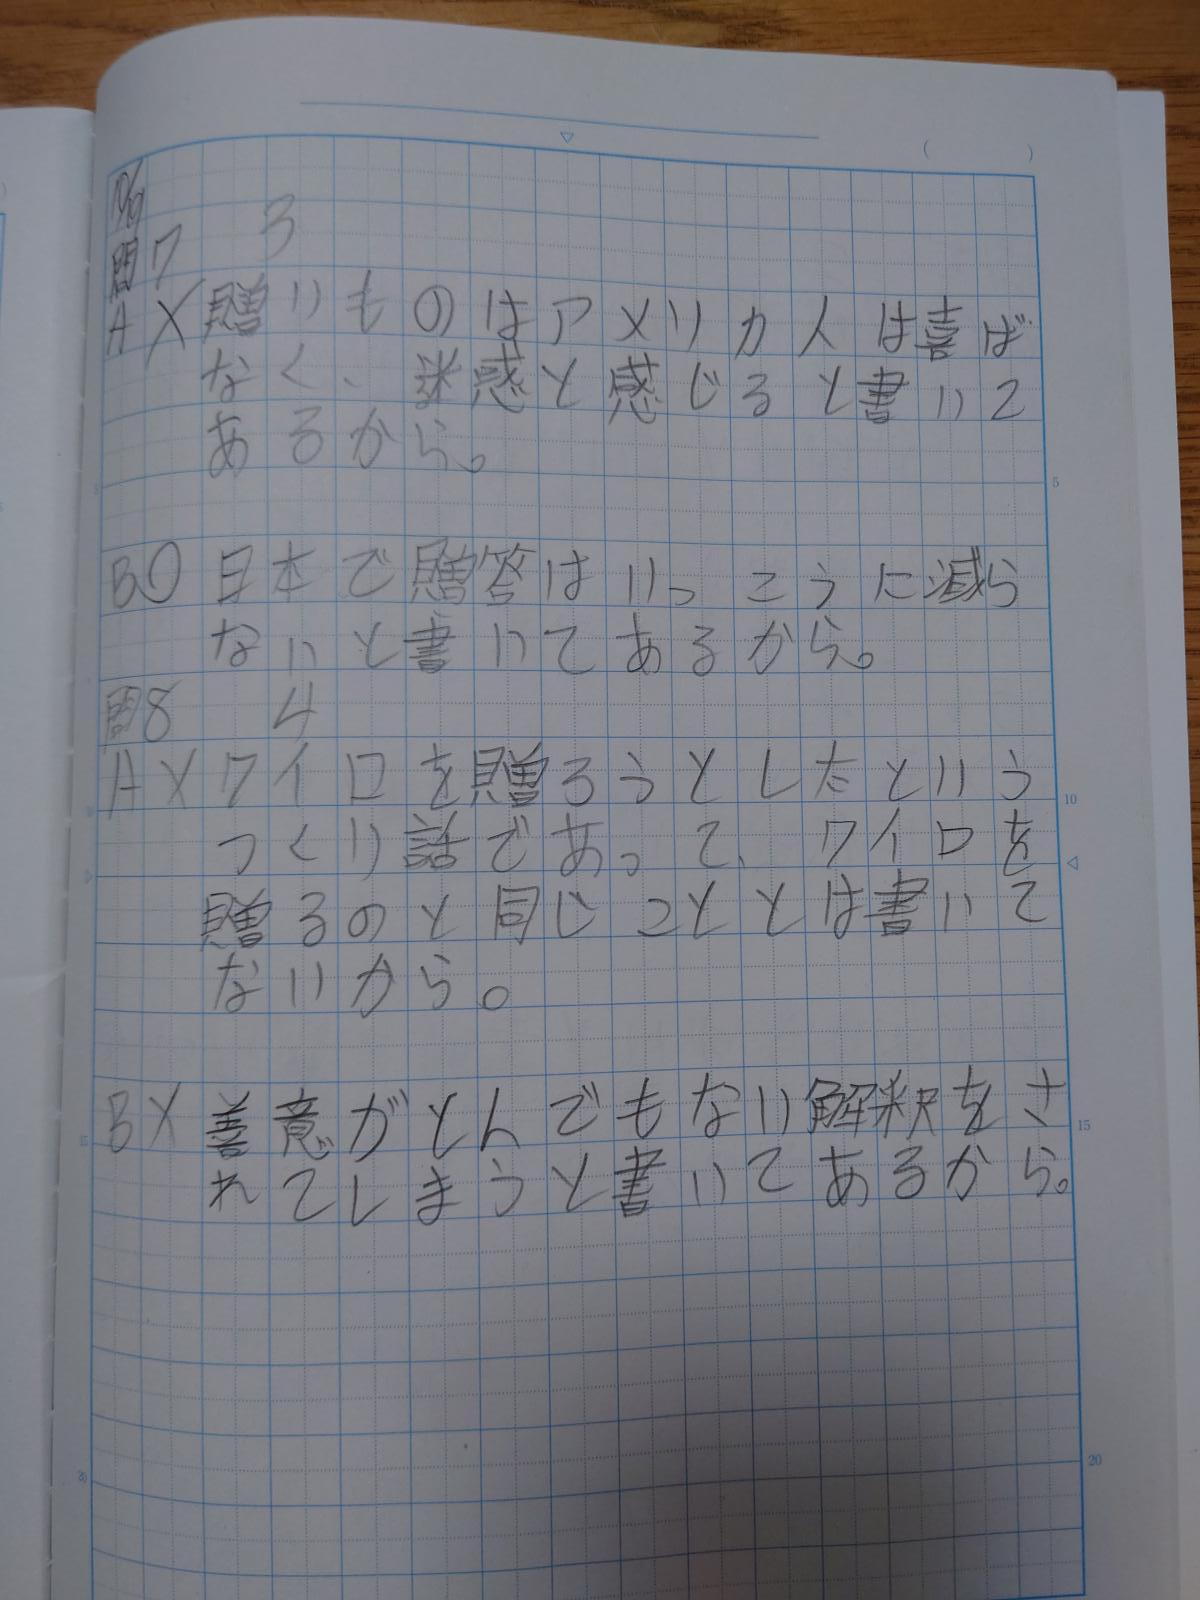 問7 3
A X 贈りものはアメリカ人は喜ば
なく、迷惑と感じると書いて
あるから。
BO 日本で贈答はいっこうに減ら
ないと書いてあるから。
問8 4
A X ワイロを贈ろうとしたという
つくり話であって、ワイロを
贈るのと同じこととは書いて
ないから。
B X 善意がとんでもない解釈をさ
れてしまうと書いてあるから。
( )
5
10
15
20